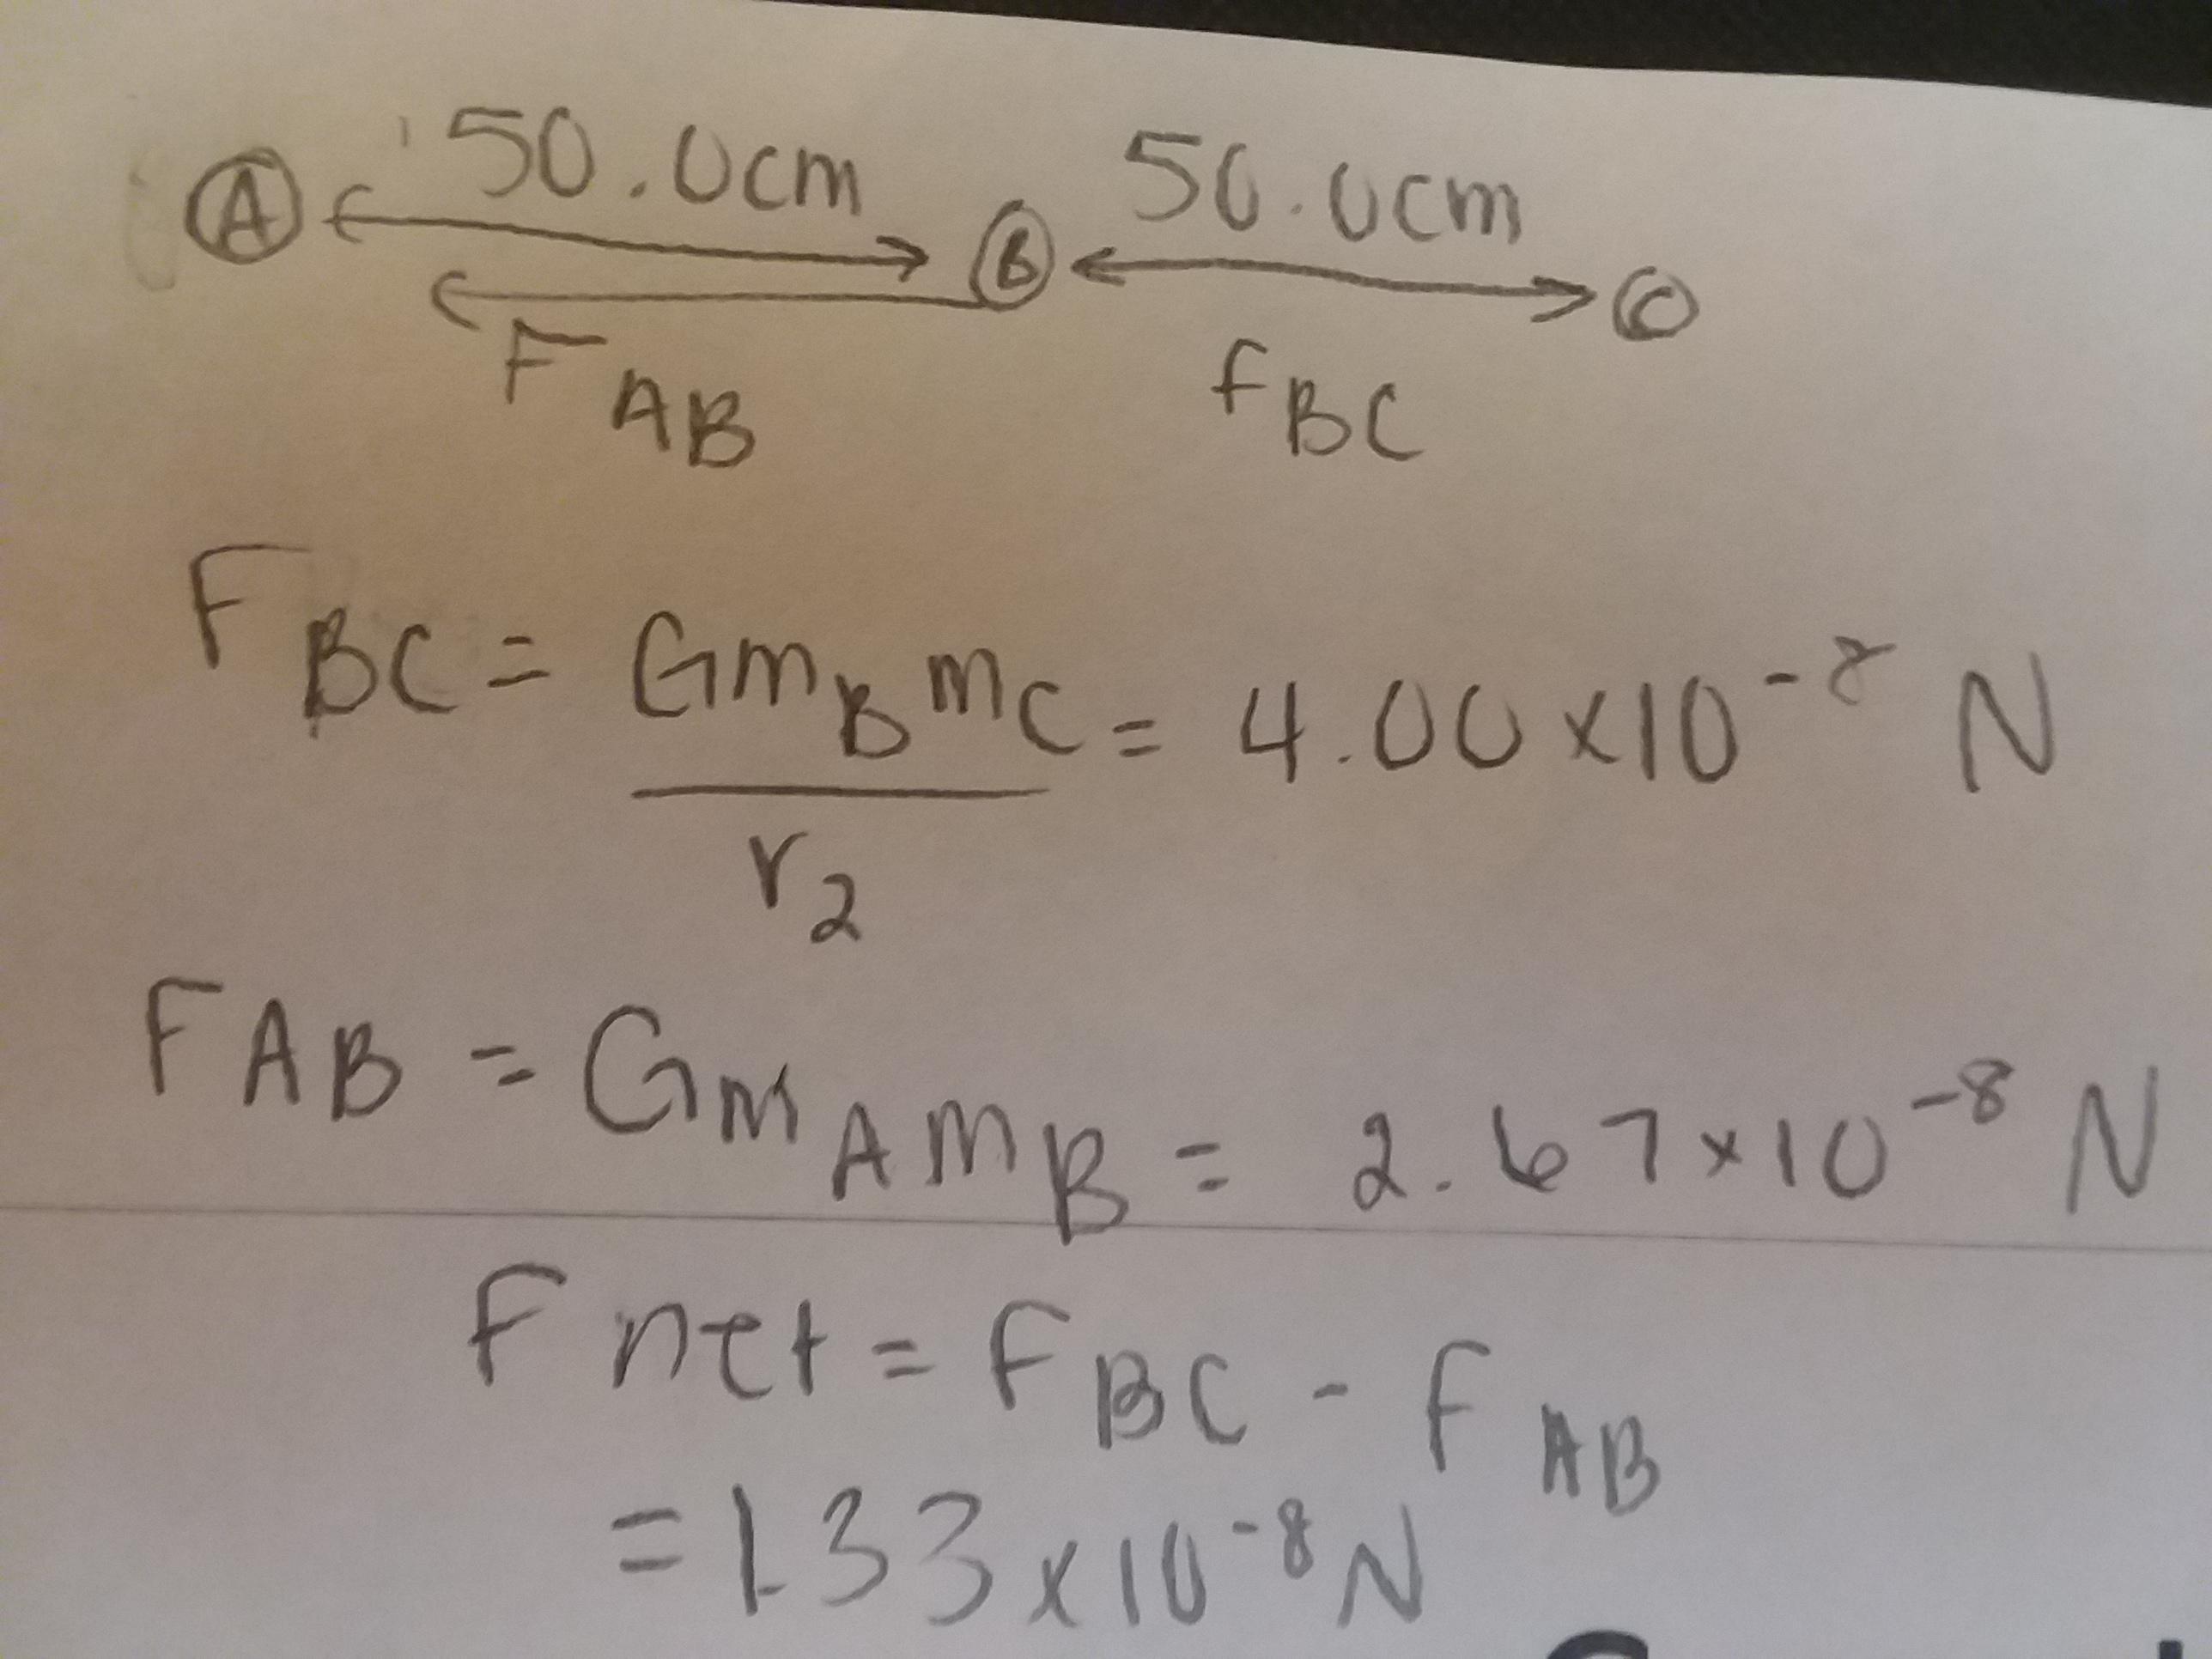 A 50.0cm B 50.0cm C
F AB fBC
F BC = GmBmC = 4.00x10⁻⁸ N
r2
FAB = GmAmB = 2.67x10⁻⁸ N
F net = FBC - FAB
= 1.33x10⁻⁸ N